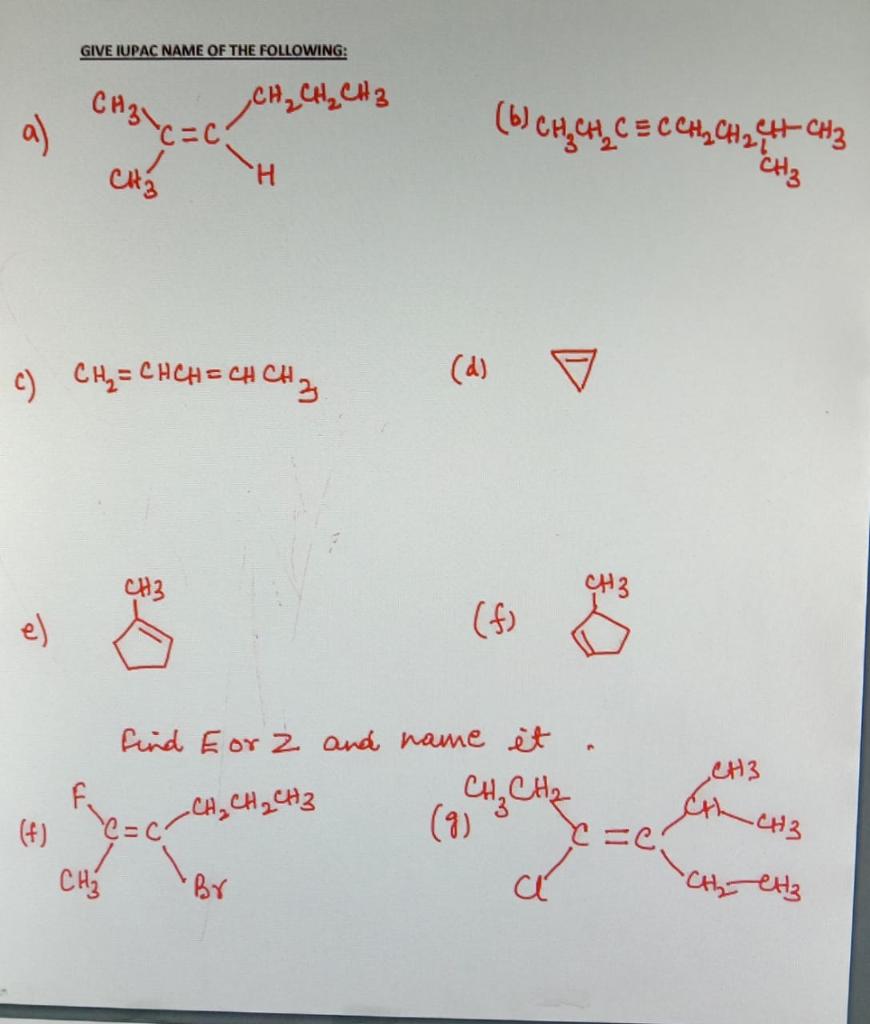 GIVE IUPAC NAME OF THE FOLLOWING:
a) CH3 CH3 C=C CH2CH2CH3 H
(b) CH3CH2C≡CCH2CH2CH-CH3
CH3
c) CH2=CHCH=CHCH3
(d)
e) CH3
(f) CH3
Find E or Z and name it .
(f) F CH3 C=C CH2CH2CH3 Br
(g) CH3CH2 Cl C=C CH CH3 CH3 CH2-CH3